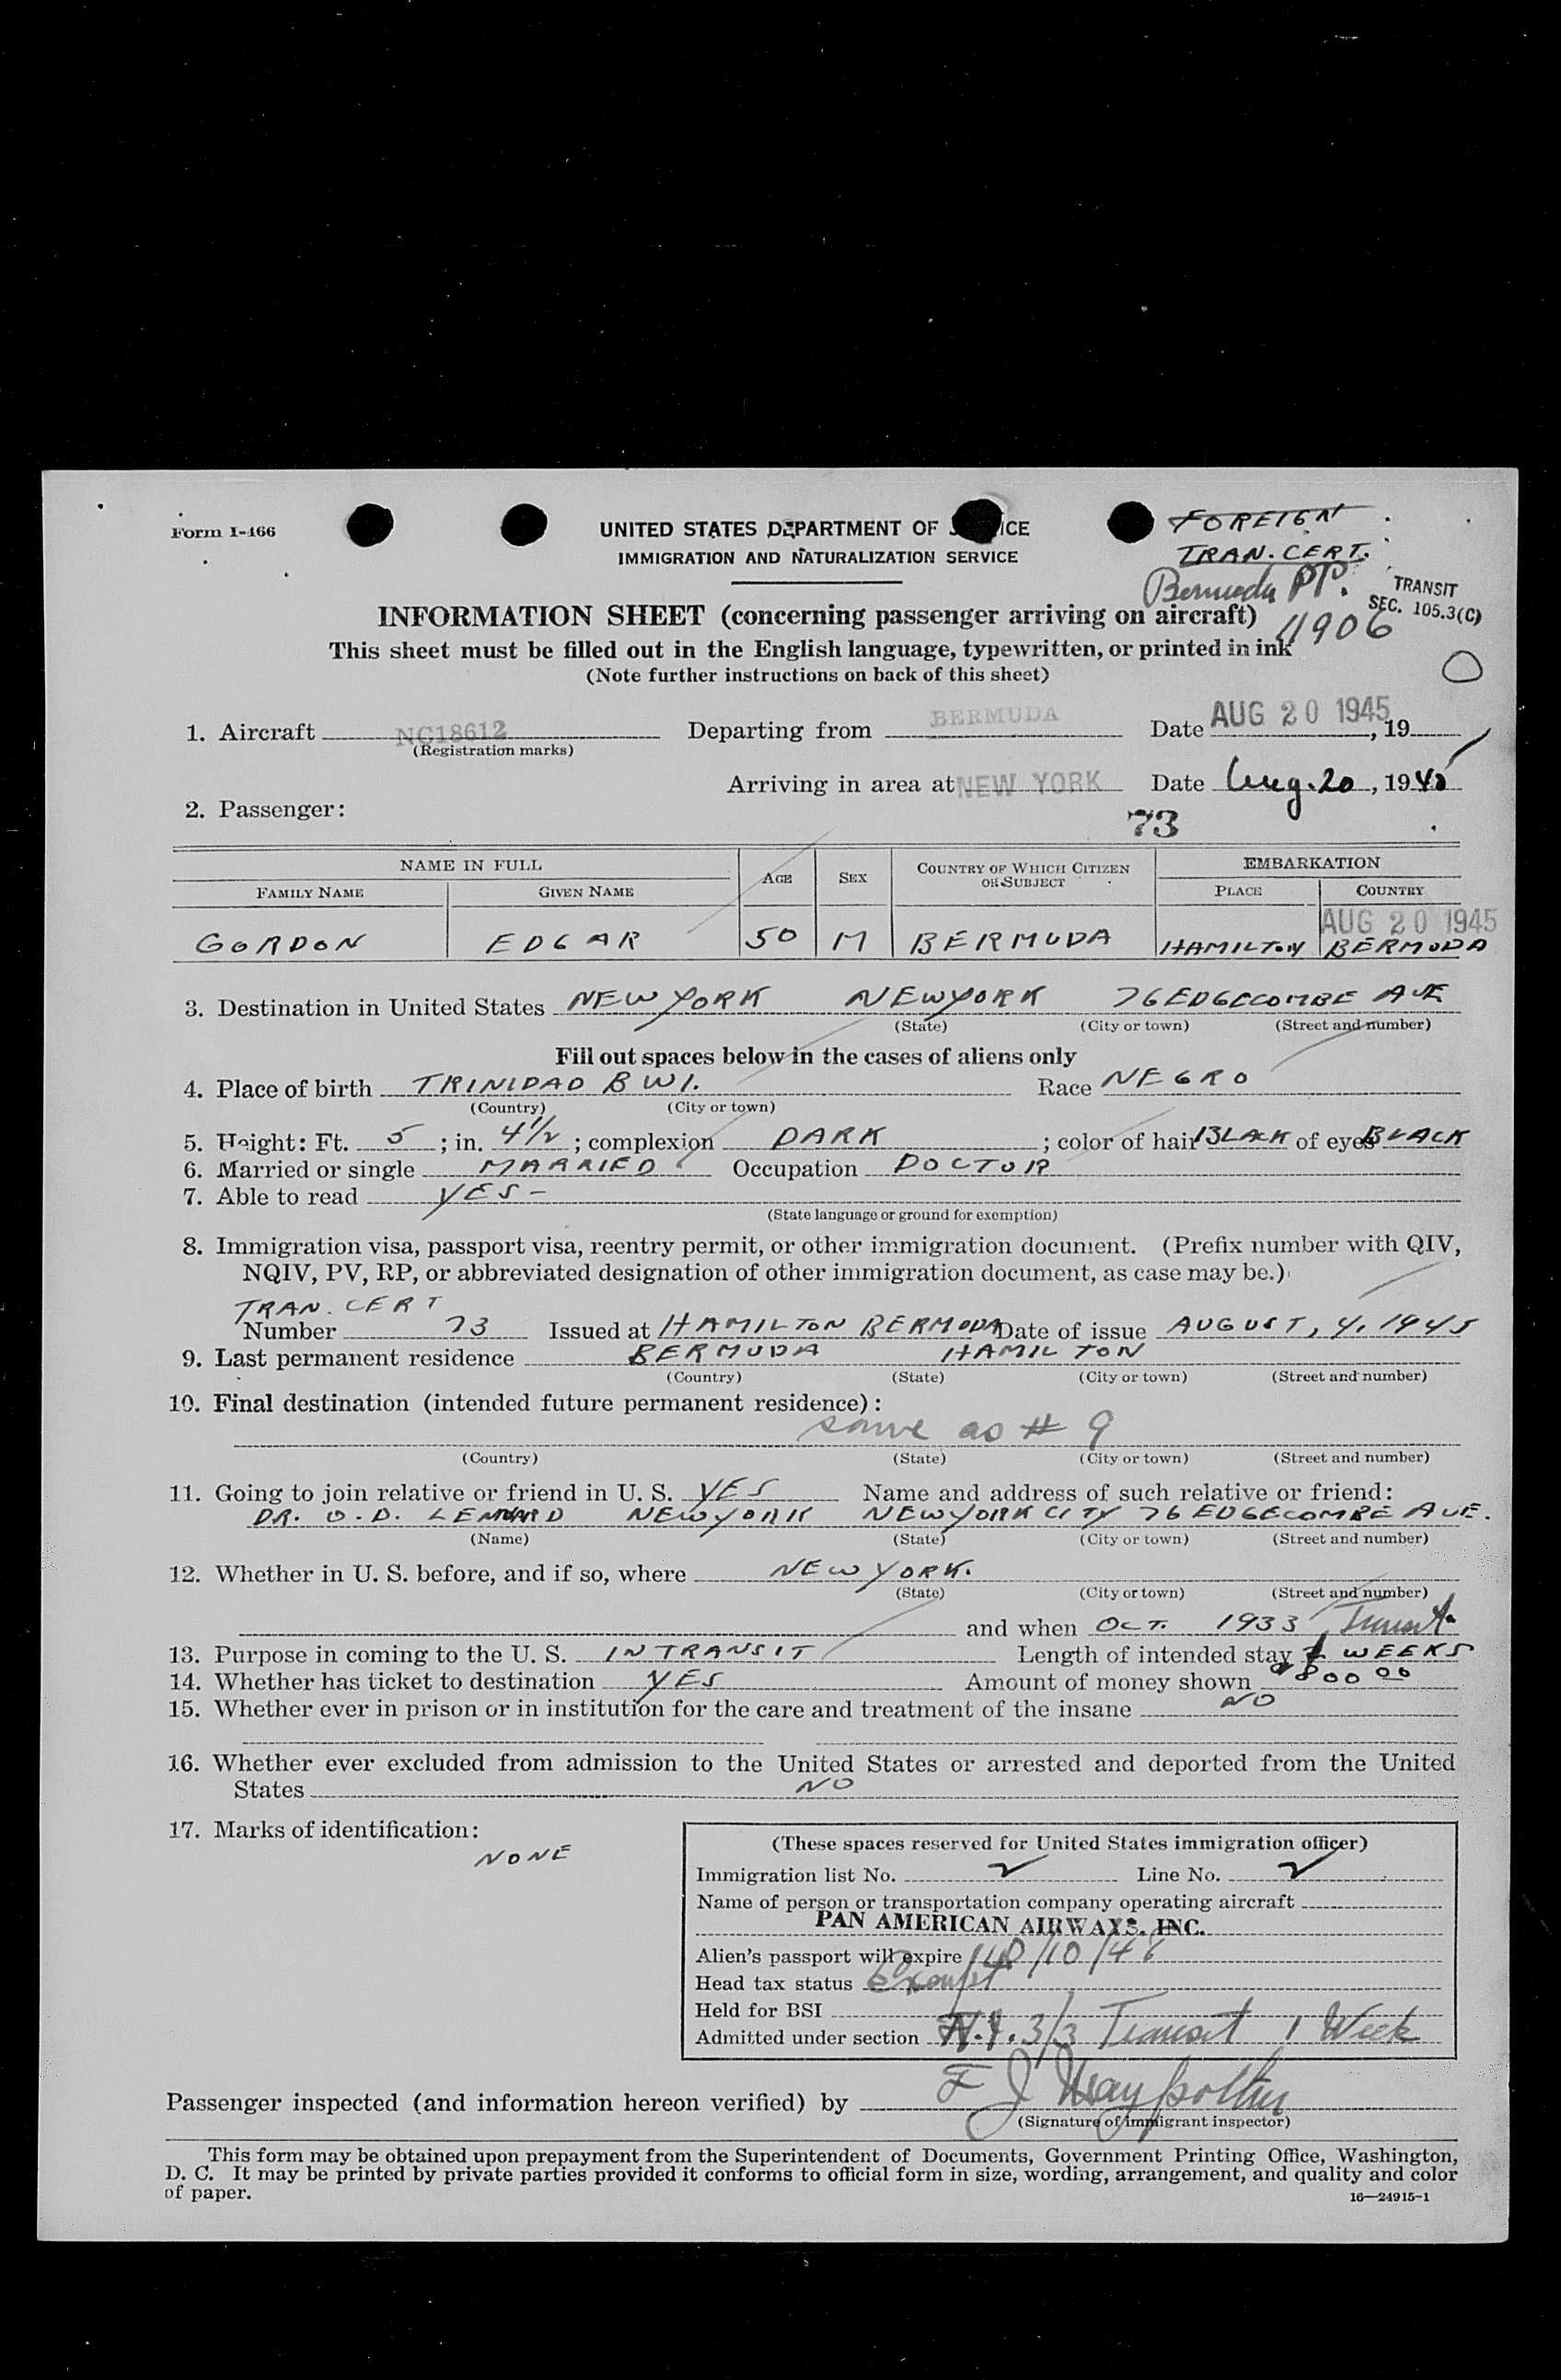 Form I-466
UNITED STATES DEPARTMENT OF J ICE
IMMIGRATION AND NATURALIZATION SERVICE
FOREIGN
TRAN. CERT.
Bermuda PP.
11906
TRANSIT
SEC. 105.3(C)
INFORMATION SHEET (concerning passenger arriving on aircraft)
This sheet must be filled out in the English language, typewritten, or printed in ink
(Note further instructions on back of this sheet)
1. Aircraft NC18612 Departing from BERMUDA Date AUG 20 1945, 19
(Registration marks)
Arriving in area at NEW YORK Date Aug. 20, 1945
2. Passenger:
73
NAME IN FULL AGE SEX COUNTRY OF WHICH CITIZEN OR SUBJECT EMBARKATION
FAMILY NAME GIVEN NAME PLACE COUNTRY
AUG 20 1945
GORDON EDGAR 50 M BERMUDA HAMILTON BERMUDA
3. Destination in United States NEW YORK NEW YORK 76 EDGECOMBE AVE
(State) (City or town) (Street and number)
Fill out spaces below in the cases of aliens only
4. Place of birth TRINIDAD B W I. Race NEGRO
(Country) (City or town)
5. Height: Ft. 5; in. 4½; complexion DARK; color of hair BLACK of eyes BLACK
6. Married or single MARRIED Occupation DOCTOR
7. Able to read YES -
(State language or ground for exemption)
8. Immigration visa, passport visa, reentry permit, or other immigration document. (Prefix number with QIV,
NQIV, PV, RP, or abbreviated designation of other immigration document, as case may be.)
TRAN. CERT
Number 73 Issued at HAMILTON BERMUDA Date of issue AUGUST, 4, 1945
9. Last permanent residence BERMUDA HAMILTON
(Country) (State) (City or town) (Street and number)
10. Final destination (intended future permanent residence):
same as # 9
(Country) (State) (City or town) (Street and number)
11. Going to join relative or friend in U. S. YES Name and address of such relative or friend:
DR. O. D. NEW YORK NEW YORK CITY 76 EDGECOMBE AVE.
(Name) (State) (City or town) (Street and number)
12. Whether in U. S. before, and if so, where NEW YORK.
(State) (City or town) (Street and number)
and when OCT. 1933
13. Purpose in coming to the U. S. IN TRANSIT Length of intended stay WEEKS
14. Whether has ticket to destination YES Amount of money shown 800 00
15. Whether ever in prison or in institution for the care and treatment of the insane NO
16. Whether ever excluded from admission to the United States or arrested and deported from the United
States NO
17. Marks of identification:
NONE
(These spaces reserved for United States immigration officer)
Immigration list No. 2 Line No. 2
Name of person or transportation company operating aircraft
PAN AMERICAN AIRWAYS, INC.
Alien's passport will expire
Head tax status Exempt
Held for BSI
Admitted under section 3/3 Transit 1 Week
Passenger inspected (and information hereon verified) by F J
(Signature of immigrant inspector)
This form may be obtained upon prepayment from the Superintendent of Documents, Government Printing Office, Washington,
D. C. It may be printed by private parties provided it conforms to official form in size, wording, arrangement, and quality and color
of paper.
16—24915-1